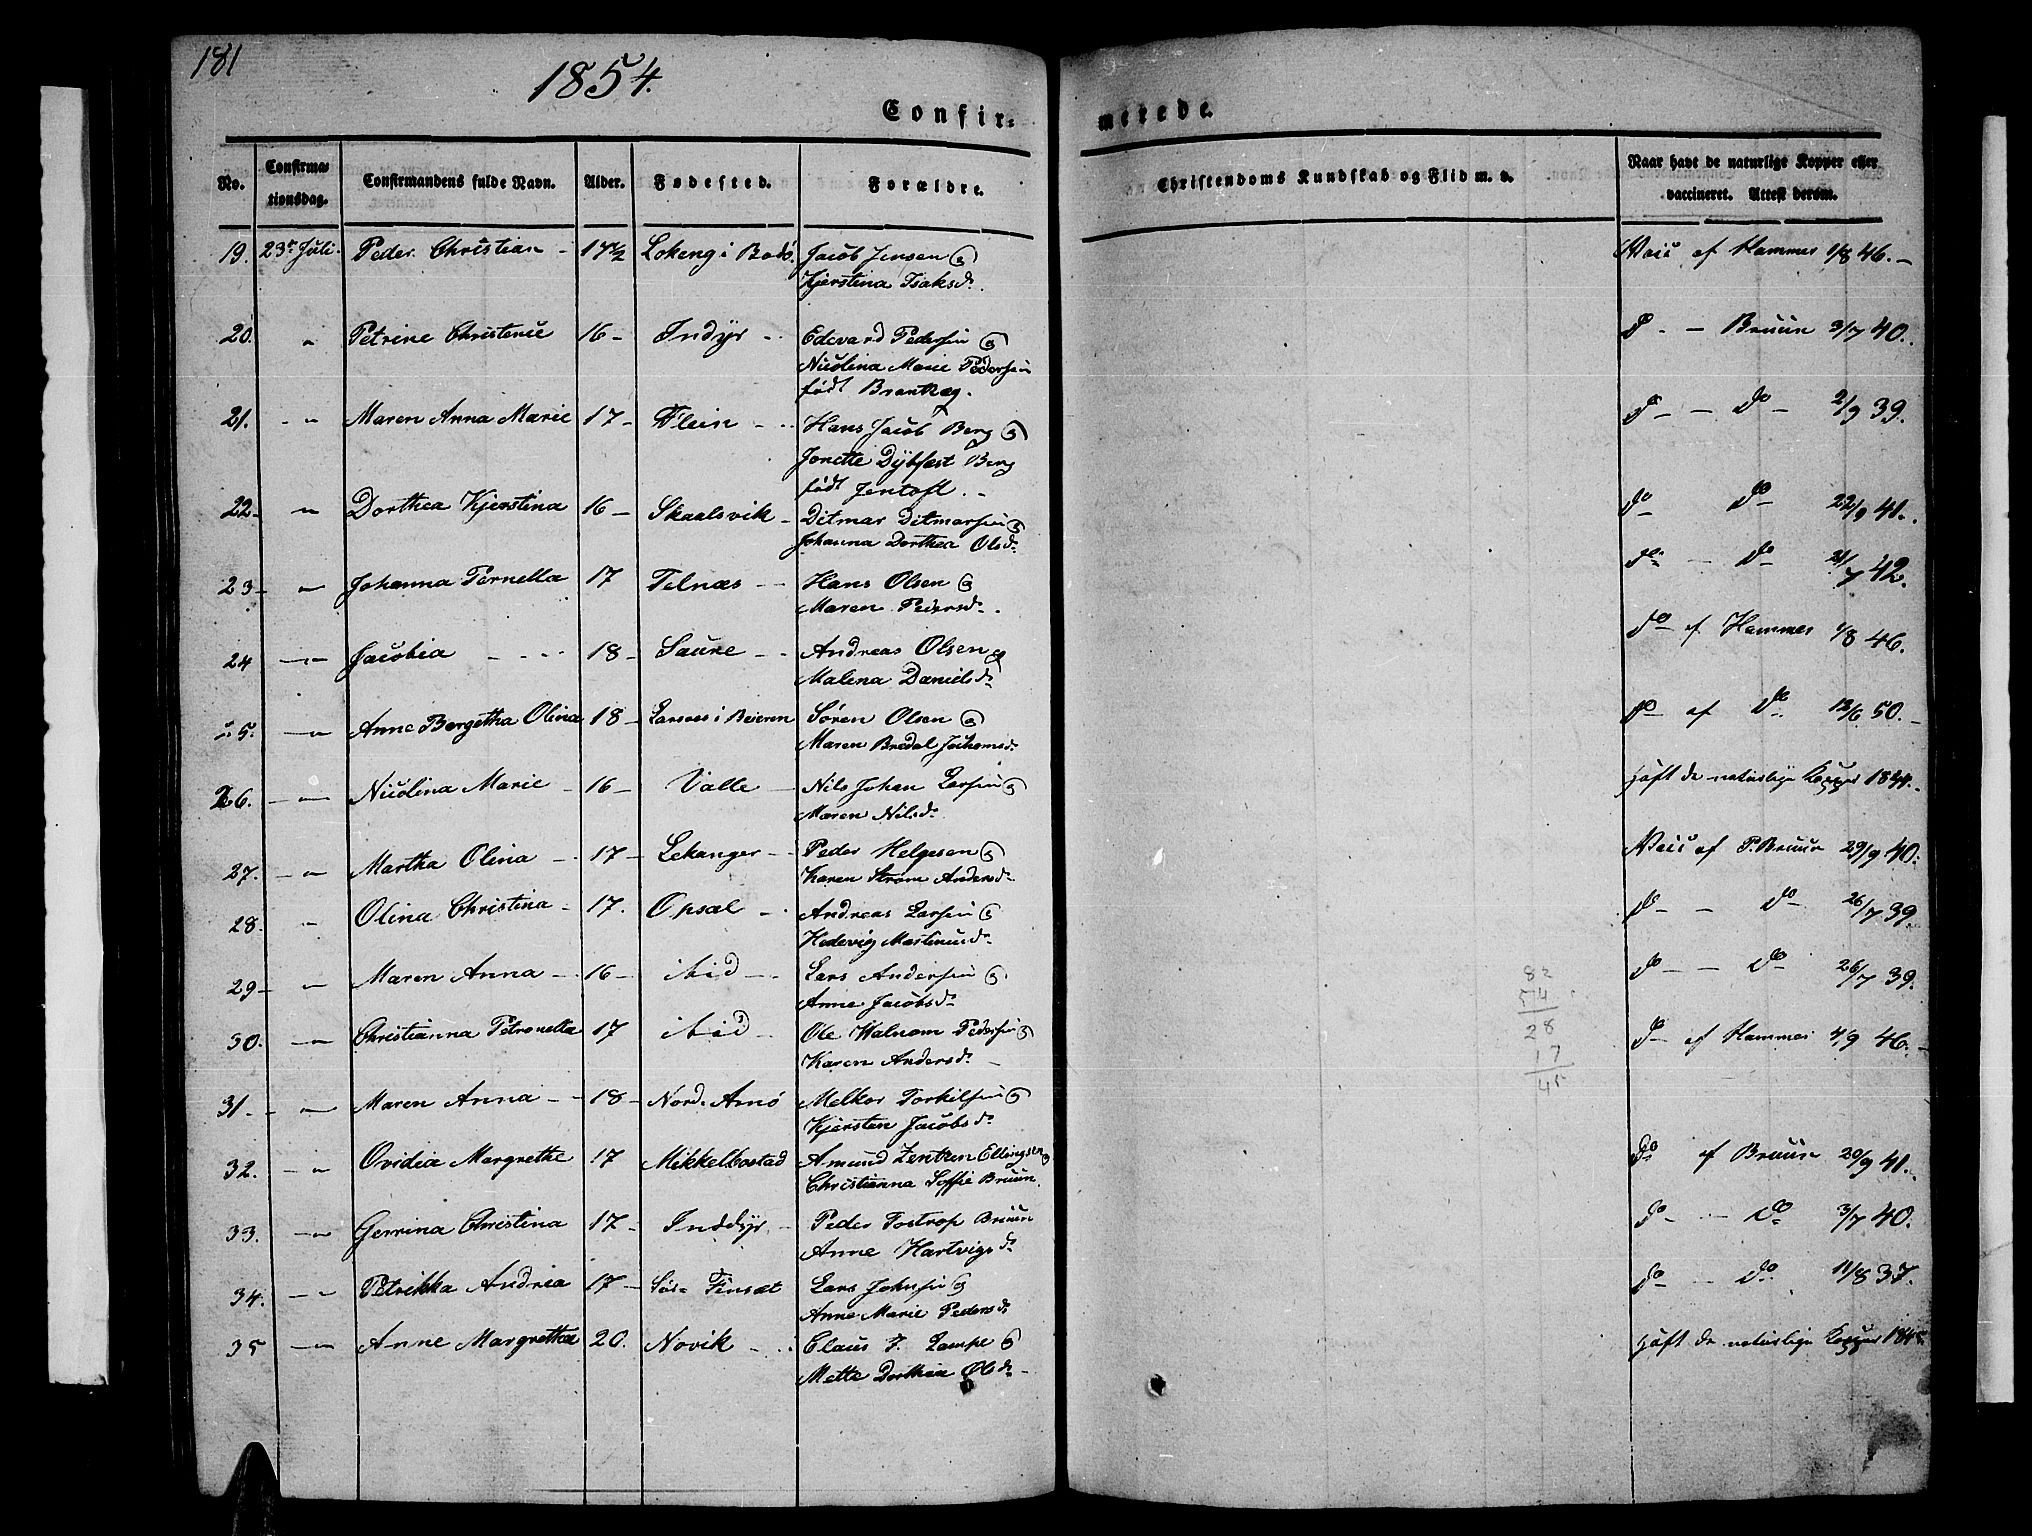 181
1854.
Confir=
merede.
No. Confirmationsdag. Confirmandens fulde Navn. Alder. Fødested. Forældre. Christendoms Kundskab og Flid m. v. Naar havt de naturlige Kopper eller vaccineret. Attest derom.
19. 23de Juli. Peder Christian 17½ Løkeng i Bodø. Jacob Jensen og Vacc. af Hammer 1/8 46.
Kjerstina Isaksd.
20. " Petrine Christence 16 Indyr Edevard Pedersen og Do Bruun 3/7 40.
Nicolina Marie Pedersen
født
21. " Maren Anna Marie 17 Flein Hans Jacob Berg og Do Do 2/9 39.
Jonette Dybfest Berg
født Jentoft.
22 " Dorthea Kjerstina 16 Skaalsvik Ditmar Ditmarsen og Do Do 22/9 41.
Johanna Dorthea Olsd.
23 " Johanna Pernella 17 Telnæs Hans Olsen og Do Do 21/7 42.
Maren Pedersd.
24 " Jacobia 18 Saure Andreas Olsen og Do af Hammer 1/8 46.
Malena Danielsd.
25. " Anne Bergetha Olina 18 i Beieren Søren Olsen og Do af Do 12/6 50.
Maren Bredal Jochomsd.
26. " Nicolina Marie 16 Valle Nils Johan Larsen og haft de naturlige Kopper 1844.
Maren Nilsd.
27. " Martha Olina 17 Lekanger Peder Helgesen og Vacc. af P. Bruun 29/9 40.
Karen Strøm Andersd.
28. " Olina Christina 17. Opsal Andreas Larsen og Do Do 26/7 39.
Hedevig Martinusd.
29 " Maren Anna 16 ibid Lars Andersen og Do Do 26/7 39.
Anne Jacobsd.
30. " Christianna Petronella 17 ibid Ole Walnom Pedersen og Do af Hammer 4/9 46.
Karen Andersd.
31. " Maren Anna 18 Nord. Arnø Melkor Torkilsen og
Kjersten Jacobsd.
32. " Ovidia Margrethe 17 Mikkelbostad Amund Zentzen Ellingsen og Do af Bruun 20/9 41.
Christianna Soffie Bruun.
33. " Gerrina Christina 17 Inddyr Peder Tostrop Bruun Do Do 3/7 40.
Anne Hartvigsd.
34. " Petrikka Andrea 17 Sør= Finset Lars Johnsen og Do Do 11/8 37.
Anne Marie Pedersd.
35 " Anne Margretha 20. Novik Claus J. Lampe og haft de naturlige Kopper
Mette Dorthea Olsd.
82
54
28
17
45